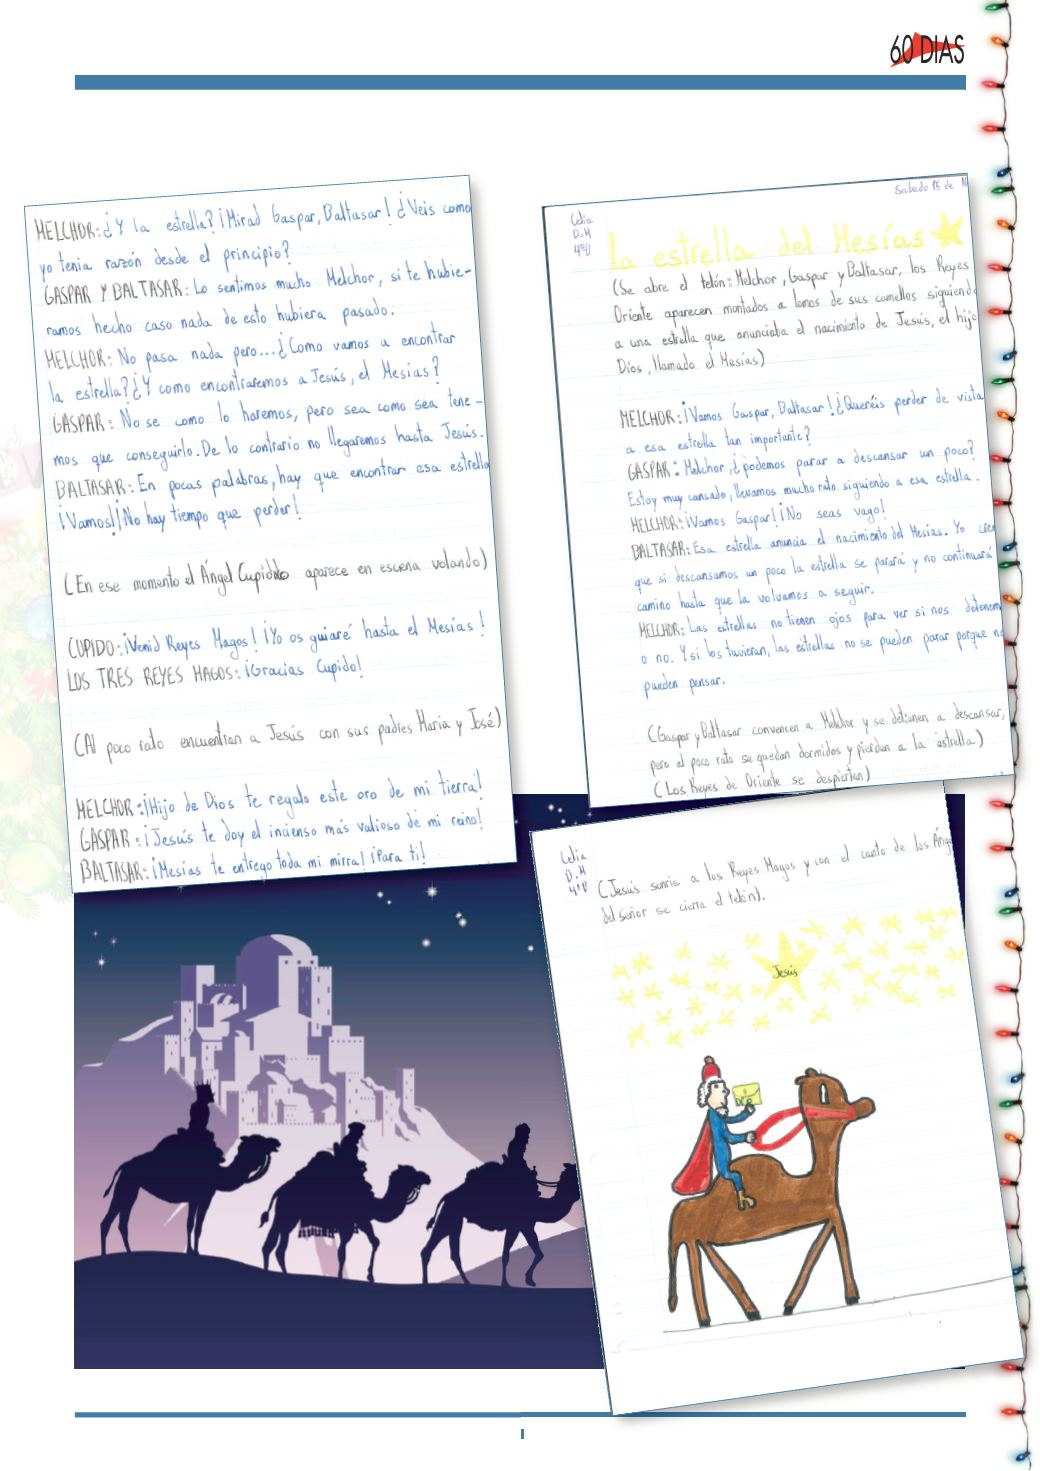 60 DIAS
Sábado 15 de N
Celia
D.M
4ºB
La estrella del Mesías
(Se abre el telón: Melchor, Gaspar y Baltasar, los Reyes
Oriente aparecen montados a lomos de sus camellos siguiendo
a una estrella que anunciaba el nacimiento de Jesús, el hijo
Dios, llamado el Mesías)
MELCHOR: ¡Vamos Gaspar, Baltasar! ¿Queréis perder de vista
a esa estrella tan importante?
GASPAR: Melchor, ¿podemos parar a descansar un poco?
Estoy muy cansado, llevamos mucho rato siguiendo a esa estrella.
MELCHOR: ¡Vamos Gaspar! ¡No seas vago!
BALTASAR: Esa estrella anuncia el nacimiento del Mesías. Yo cre
que si descansamos un poco la estrella se parará y no continuará
camino hasta que la volvamos a seguir.
MELCHOR: Las estrellas no tienen ojos para ver si nos detenem
o no. Y si los tuvieran, las estrellas no se pueden parar porque no
pueden pensar.
(Gaspar y Baltasar convencen a Melchor y se detienen a descansar,
pero al poco rato se quedan dormidos y pierden a la estrella)
(Los Reyes de Oriente se despiertan)
MELCHOR: ¿Y la estrella? ¡Mirad Gaspar, Baltasar! ¿Veis como
yo tenia razón desde el principio?
GASPAR Y BALTASAR: Lo sentimos mucho Melchor, si te hubie-
ramos hecho caso nada de esto hubiera pasado.
MELCHOR: No pasa nada pero... ¿Como vamos a encontrar
la estrella? ¿Y como encontraremos a Jesús, el Mesías?
GASPAR: No se como lo haremos, pero sea como sea tene-
mos que conseguirlo. De lo contrario no llegaremos hasta Jesús.
BALTASAR: En pocas palabras, hay que encontrar esa estrella
¡Vamos! ¡No hay tiempo que perder!
(En ese momento el Ángel Cupido aparece en escena volando)
CUPIDO: ¡Venid Reyes Magos! ¡Yo os guiaré hasta el Mesías!
LOS TRES REYES MAGOS: ¡Gracias Cupido!
(Al poco rato encuentran a Jesús con sus padres María y José)
MELCHOR: ¡Hijo de Dios te regalo este oro de mi tierra!
GASPAR: ¡Jesús te doy el incienso más valioso de mi reino!
BALTASAR: ¡Mesías te entrego toda mi mirra! ¡Para ti!
Celia
D.M
4ºB
(Jesús sonríe a los Reyes Magos y con el canto de los Ánge
del señor se cierra el telón).
Jesús